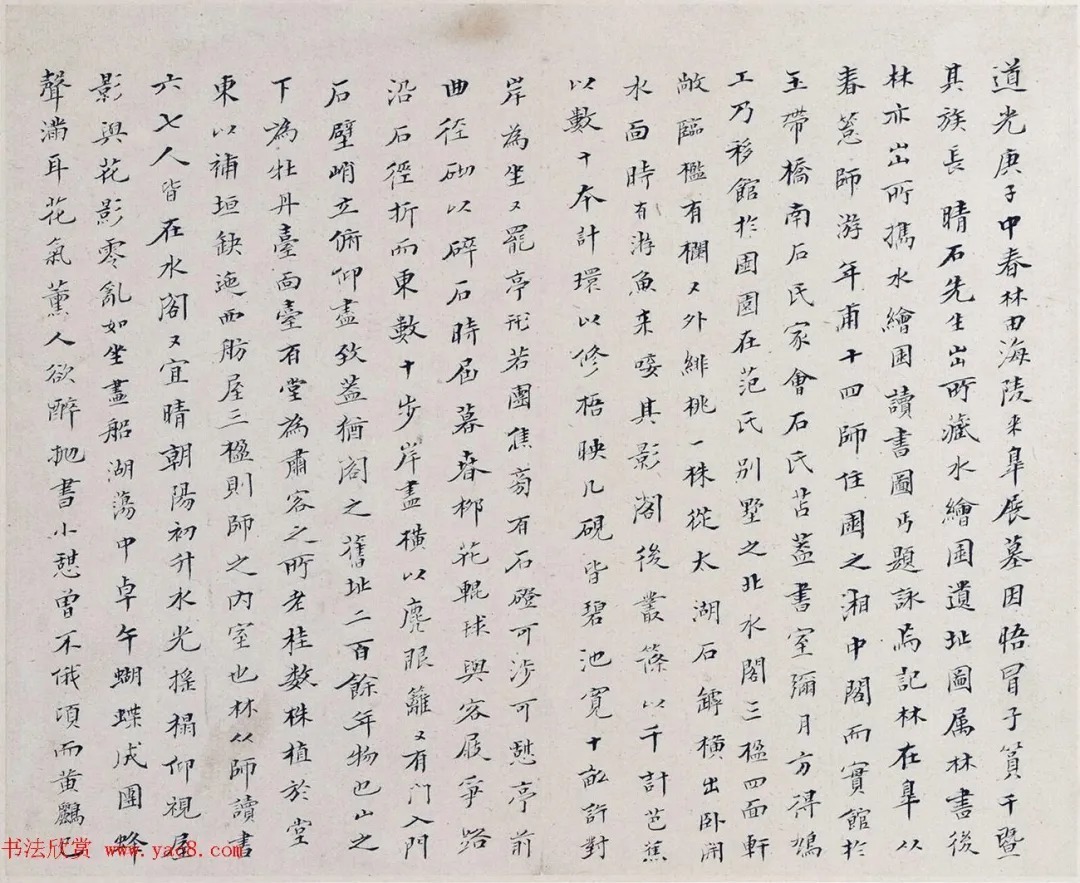 道光庚子中春林由海陵来皋展墓因晤冒子篔千暨
其族長晴石先生出所藏水繪園遺址圖属林書後
林亦出所攜水繪園讀書圖丐題詠為記林在皋从
春蕙師游年甫十四師住園之湘中閣而實館於
玉帶橋南石民家會石氏苫蓋書室彌月方得鳩
工乃移館於園園在范氏别墅之北水閣三楹四面軒
敞臨檻有欄〻外緋桃一株從太湖石罅橫出卧開
水面時有游魚来唼其影閣後叢篠以千計芭蕉
以數十本計環以修梧映几硯皆碧池寬十畝許對
岸為坐〻罷亭形若團焦旁有石磴可涉可憩亭前
曲徑砌以碎石時屆暮春柳花輥球與客屐爭路
沿石徑折而東數十步岸盡橫以麂眼籬〻有门入門
石壁峭立俯仰盡致蓋猶閣之舊址二百餘年物也山之
下為牡丹臺面臺有堂為肅客之所老桂数株植於堂
東以補垣缺迤西肪屋三楹則師之内室也林从師讀書
六七人皆在水閣〻宜晴朝陽初升水光搖榻仰視屋
影與花影零亂如坐畫船湖蕩中卓午蝴蝶成團蜂
聲滿耳花氣薰人欲醉抛書小憩曾不俄頃而黄鸝已
书法欣赏 www.yac8.com